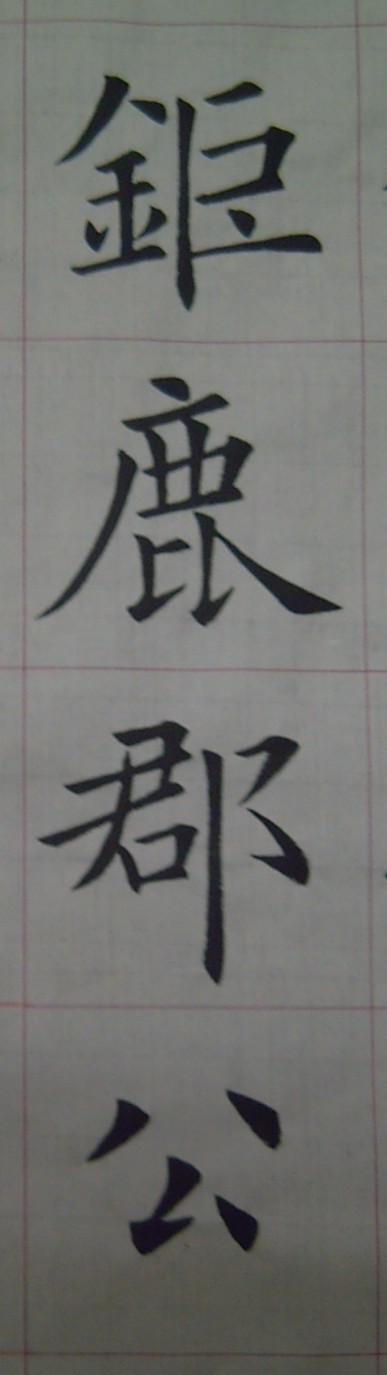 鉅鹿郡公